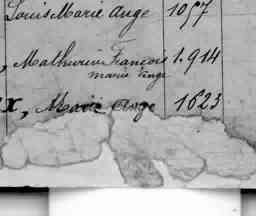 Louis Marie Ange 1057
, Mathurin François 1.914
marie Ange
x, Marie Ange 1623